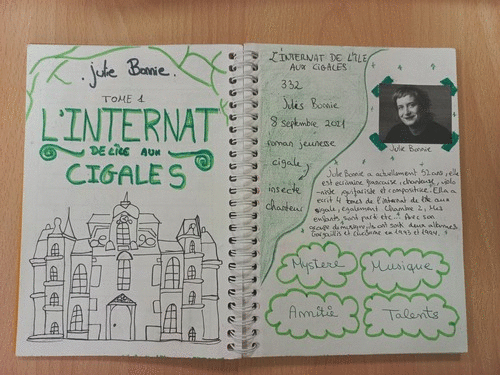 Julie Bonnie.
TOME 1
L'INTERNAT
DE L'ÎLE AUX
CIGALES
L'INTERNAT DE L'ÎLE
AUX CIGALES
332
Julie Bonnie
8 septembre 2021
roman jeunesse
cigale,
insecte
chanteur
Julie Bonnie
Julie Bonnie a actuellement 52 ans, elle
est écrivaine française, chanteuse, violo
-niste guitariste et compositrice. Elle a
écrit 4 tomes de l'internat de île aux
cigale, également Chambre 2, Mes
enfants sont parti etc... Avec son
groupe de musique, ils ont sorti deux albums
et 1993 et 1994.
Mystère
Musique
Amitié
Talents